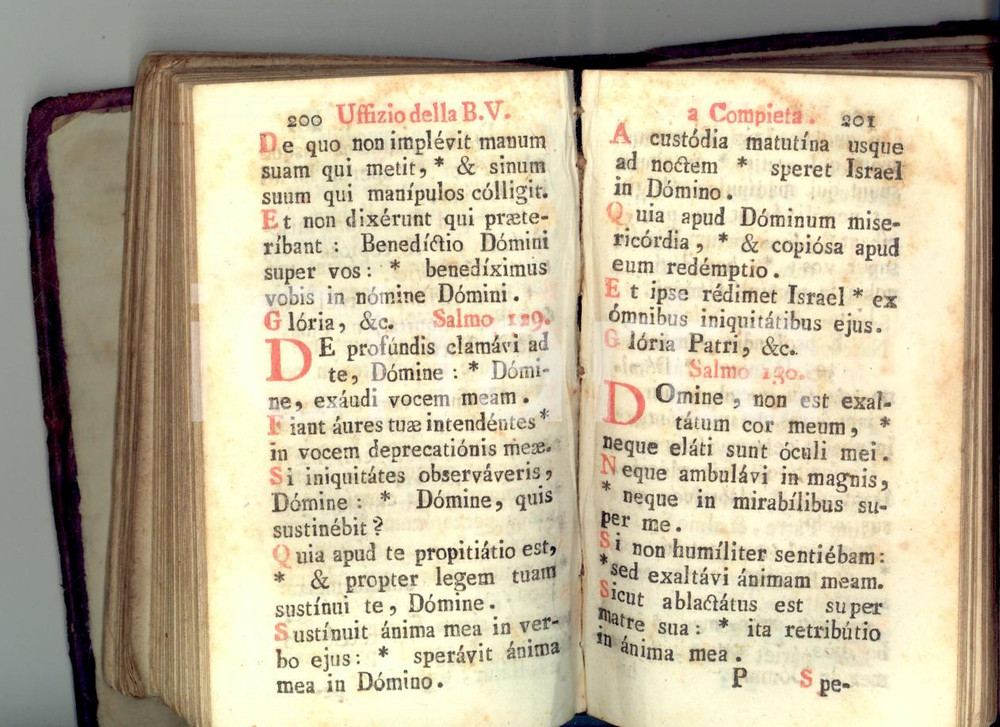 200 Uffizio della B. V.
De quo non implévit manum
suam qui metit, * & sinum
suum qui manípulos cólligit.
Et non dixérunt qui præte-
ríbant : Benedíctio Dómini
super vos : * benedíximus
vobis in nómine Dómini .
Glória, &c. Salmo 129.
DE profúndis clamávi ad
te, Dómine : * Dómi-
ne, exáudi vocem meam .
Fiant áures tuæ intendéntes *
in vocem deprecatiónis meæ.
Si iniquitátes observáveris,
Dómine : * Dómine, quis
sustinébit ?
Quia apud te propitiátio est,
* & propter legem tuam
sustínui te, Dómine .
Sustínuit ánima mea in ver-
bo ejus : * sperávit ánima
mea in Dómino .
a Compieta . 201
A custódia matutína usque
ad noctem * speret Israel
in Dómino .
Quia apud Dóminum mise-
ricórdia, * & copiósa apud
eum redémptio .
Et ipse rédimet Israel * ex
ómnibus iniquitátibus ejus .
Glória Patri, &c.
Salmo 130.
DOmine, non est exal-
tátum cor meum, *
neque eláti sunt óculi mei .
Neque ambulávi in magnis,
* neque in mirabílibus su-
per me .
Si non humíliter sentiébam :
* sed exaltávi ánimam meam.
Sicut ablactátus est super
matre sua : * ita retribútio
in ánima mea .
P Spe-